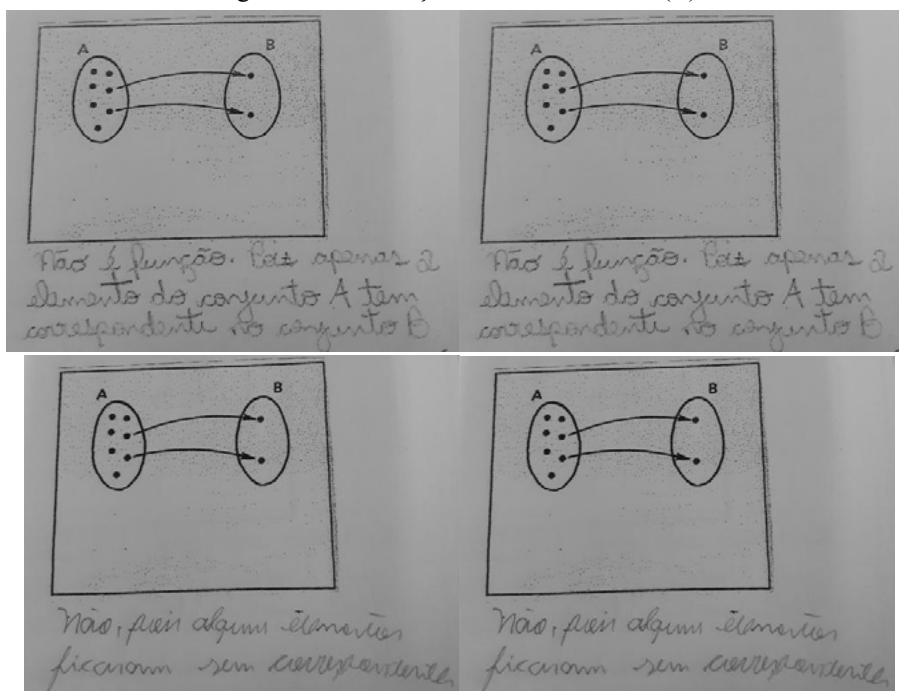 A B
A B
Não é função. Pois apenas 2
elemento do conjunto A tem
correspondente no conjunto B
Não é função. Pois apenas 2
elemento do conjunto A tem
correspondente no conjunto B
A B
A B
Não, pois alguns elementos
ficaram sem correspondentes
Não, pois alguns elementos
ficaram sem correspondentes